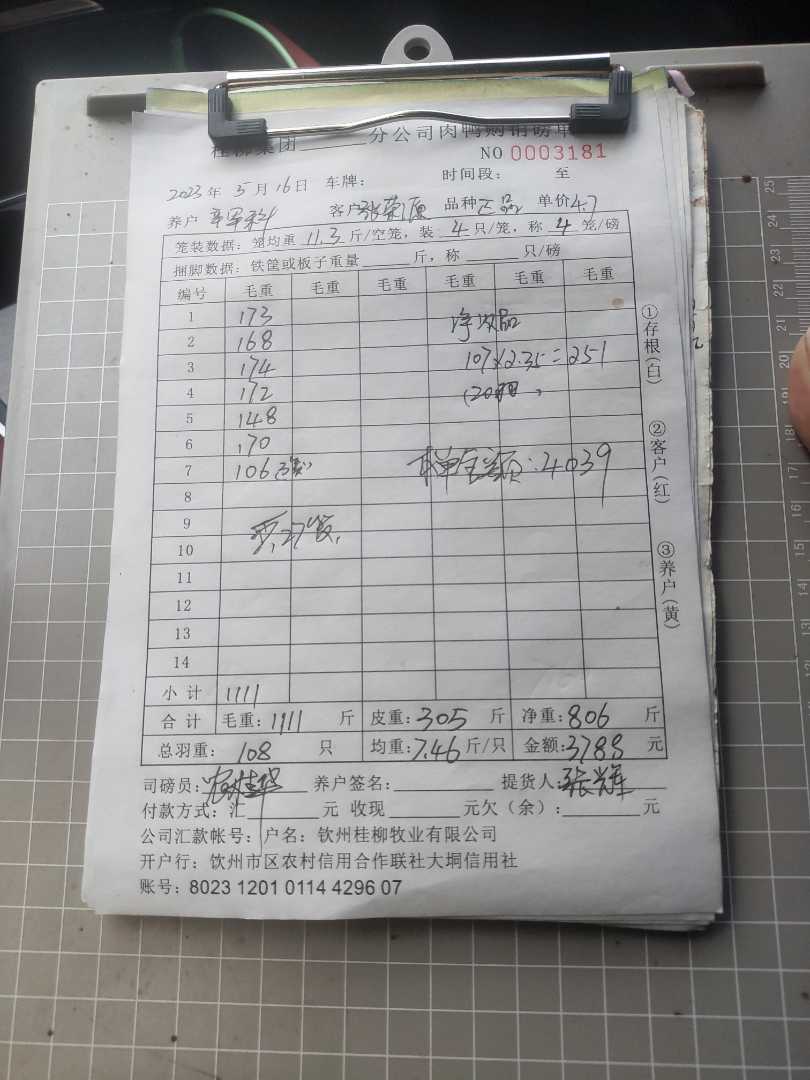 桂柳集团______分公司肉鸭购销磅单
NO 0003181
2023年 5月16日 车牌： 时间段： 至
养户 客户 张荣 品种 正品 单价4.7
笼装数据：笼均重 11.3 斤/空笼，装 4 只/笼，称 4 笼/磅
捆脚数据：铁筐或板子重量______斤，称______只/磅
编号 毛重 毛重 毛重 毛重 毛重 毛重
1 173 净次品
2 168
3 174 107×2.35=251
4 172 (20
5 148
6 170
7 106 单金额：4039
8
9 27
10
11
12
13
14
小计 1111
合计 毛重：1111 斤 皮重：305 斤 净重：806 斤
总羽重： 108 只 均重：7.46斤/只 金额：3788 元
司磅员： 养户签名：______ 提货人：张
付款方式：汇______元 收现______元欠（余）：______元
公司汇款帐号：户名：钦州桂柳牧业有限公司
开户行：钦州市区农村信用合作联社大垌信用社
账号：8023 1201 0114 4296 07
①存根（白）
②客户（红）
③养户（黄）